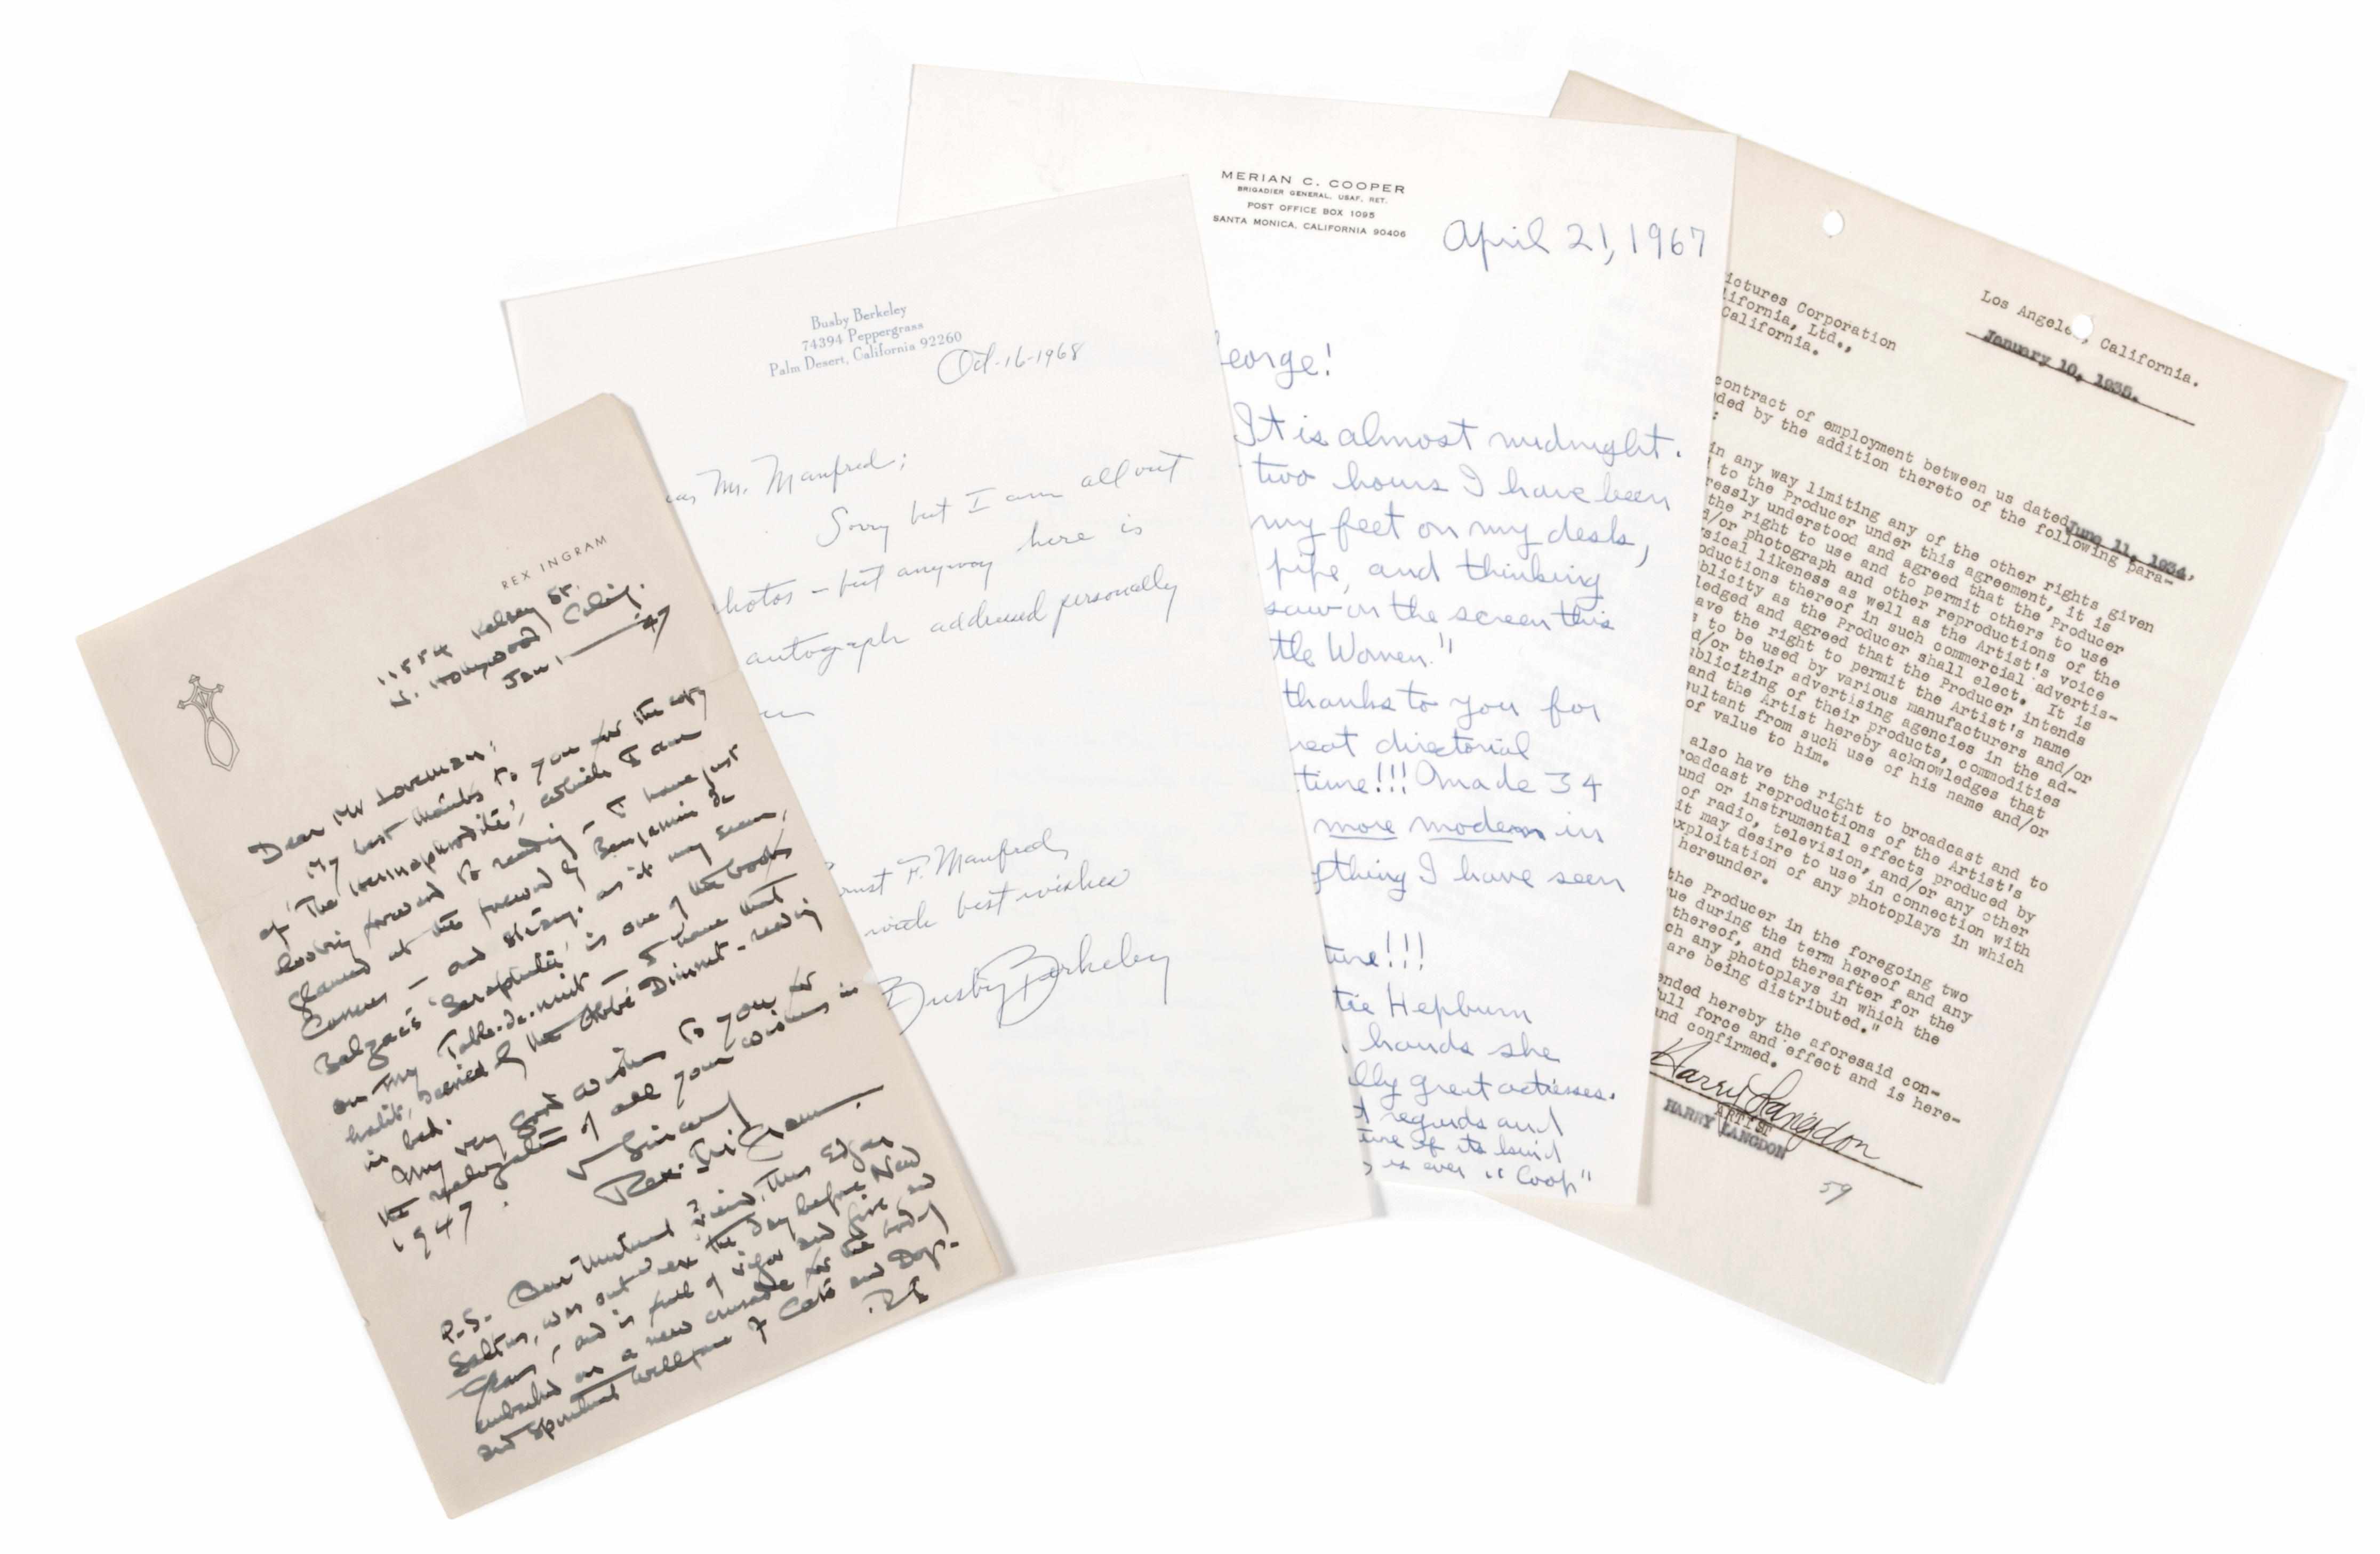 REX INGRAM
11554 Kelsey St.
N. Hollywood Calif.
Jan 1 — 47
Dear Mr Loveman:
My best thanks to you for the copy
of 'The Hermaphrodite', which I am
looking forward to reading — I have just
glanced at the foreword by Benjamin de
Casseres — and strange as it may seem,
Balzac's 'Seraphita' is one of the books
on my Table-de-nuit — I have that
habit, decried by the Abbé Dimnet - reading
in bed.
My very best wishes to you for
the realization of all your wishes in
1947.
Sincerely
Rex Ingram
P.S. Our mutual friend, Edgar
Saltus, was out here the day before New
Years, and is full of vigor and fire and
embarked on a new crusade for the bodily
and spiritual welfare of Cats and Dogs.
R I
Busby Berkeley
74394 Peppergrass
Palm Desert, California 92260
Oct-16-1968
Mr. Manfred;
Sorry but I am all out
photos - but anyway here is
autograph addressed personally
Ernst F. Manfred,
with best wishes
Busby Berkeley
MERIAN C. COOPER
BRIGADIER GENERAL, USAF, RET.
POST OFFICE BOX 1095
SANTA MONICA, CALIFORNIA 90406
April 21, 1967
eorge!
It is almost midnight.
two hours I have been
my feet on my desk,
pipe, and thinking
saw on the screen this
ttle Women."
thanks to you for
reat directorial
time!!! Made 34
more modern in
ything I have seen
ture!!!
tie Hepburn
hands she
lly great actresses.
t regards and
ture of its kind
as ever "Coop"
Los Angeles, California.
January 10, 1935.
ictures Corporation
lifornia, Ltd.,
California.
contract of employment between us dated June 11, 1934,
ded by the addition thereto of the following para-
:
in any way limiting any of the other rights given
to the Producer under this agreement, it is
ressly understood and agreed that the Producer
the right to use and to permit others to use
d/or photograph and other reproductions of the
sical likeness as well as the Artist's voice
oductions thereof in such commercial advertis-
blicity as the Producer shall elect. It is
ledged and agreed that the Producer intends
ave the right to permit the Artist's name
s to be used by various manufacturers and/or
d/or their advertising agencies in the ad-
ublicizing of their products, commodities
and the Artist hereby acknowledges that
sultant from such use of his name and/or
of value to him.
also have the right to broadcast and to
roadcast reproductions of the Artist's
und or instrumental effects produced by
of radio, television, and/or any other
it may desire to use in connection with
xploitation of any photoplays in which
hereunder.
the Producer in the foregoing two
ue during the term hereof and any
thereof, and thereafter for the
ch any photoplays in which the
are being distributed."
ended hereby the aforesaid con-
full force and effect and is here-
and confirmed.
Harry Langdon
ARTIST
HARRY LANGDON
59